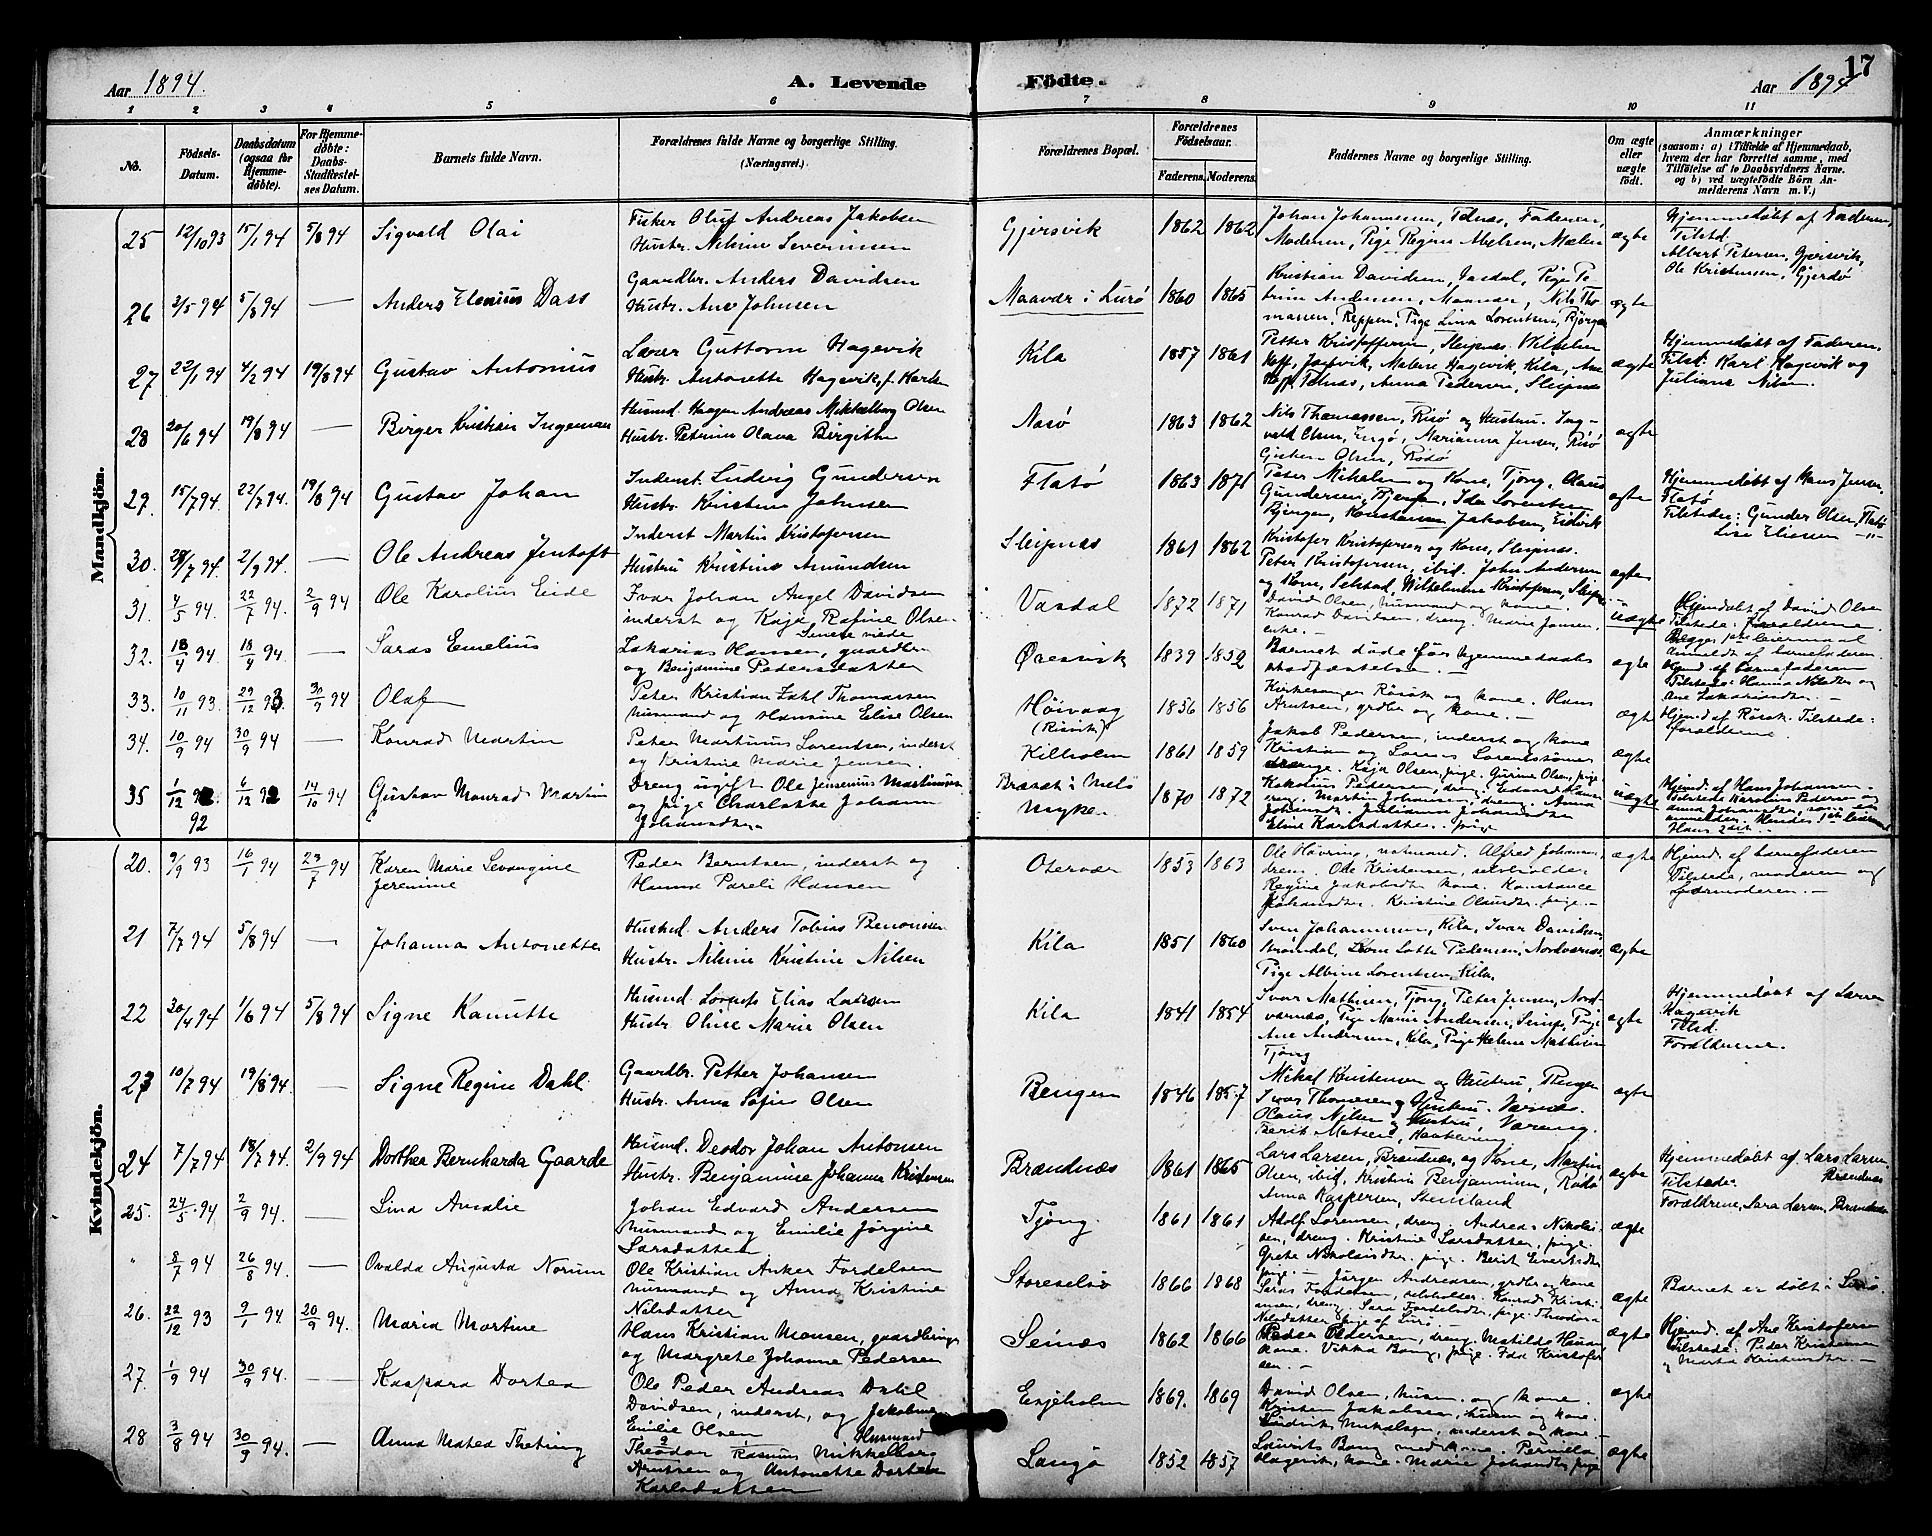 Aar 1894.
A. Levende Födte.
Aar 1894
17
1 2 3 4 5 6 7 8 9 10 11
No.
Födsels-Datum.
Daabsdatum (ogsaa for Hjemme-döbte).
For Hjemme-döbte: Daabs-Stadfæstel-ses Datum.
Barnets fulde Navn.
Forældrenes fulde Navne og borgerlige Stilling. (Næringsvei.)
Forældrenes Bopæl.
Forældrenes Födselsaar.
Faderens.
Moderens.
Faddernes Navne og borgerlige Stilling.
Om ægte eller uægte födt.
Anmærkninger
(saasom: a) i Tilfælde af Hjemmedaab,
hvem der har forrettet samme, med
Tilföielse af to Daabsvidners Navne.
og b) ved uægtefödte Börn An-
melderens Navn m. V.)
Mandkjön.
25 12/10 93 15/1 94 5/8 94 Sigvald Olai
Fisker Oluf Andreas Jakobsen
Hustr. Nilsine Severinsen
Gjersvik 1862 1862
Johan Johannesen, Telnæs, Faderen,
Moderen, Pige Regine Abelsen, Mælen
ægte
Hjemmedøbt af Faderen,
Tilsted.
Albert Petersen, Gjersvik,
Ole Kristensen, Gjerdø
26 2/5 94 5/8 94 — Anders Elenius Dass
Gaardbr. Anders Davidsen
Hustr. Ane Johnsen
Maavær i Lurø 1860 1865
Kristian Davidsen, Pige Pe-
trine Andersen, Maavær, Nils Tho-
massen, Reppen, Pige Lina Lorentsen, Bjørgen
ægte
27 22/1 94 4/2 94 19/8 94 Gustav Antonius
Lærer Guttorm Hagevik
Hustr. Antonette Hagevik, f. Karlsen
Kila 1857 1861
Petter Kristoffersen, Sleipnæs
Malene Hagevik, Kila,
Telnæs, Anna Pedersen, Sleipnæs
ægte
Hjemmedøbt af Faderen,
Tilst. Karl Hagevik og
Juliane Nilsen.
28 20/6 94 19/8 94 — Birger Kristian Ingeman
Husmd. Haagen Andreas Mikkelborg Olsen
Hustr. Petrine Olava Birgitte
Nesø 1863 1862
Nils Thomassen, Risø og Hustru. Ing-
vald Olsen, Engø, Marianna Jensen, Risø
Olsen, Rødø
ægte
29. 15/7 94 22/7 94. 19/8 94 Gustav Johan
Inderst. Ludvig Gundersen
Hustr. Kristine Johnsen
Flatø 1863 1871
Peter Mikalsen og Kone, Tjong, Olaus
Gundersen, Ida Lorentsen
Bjergen, Konstanse Jakobsen, Eidvik
ægte
Hjemmedøbt af Hans Jensen,
Flatø
Tilstede: Gunder Olsen, Flatø
Lise Eliesen —"—
30. 28/7 94. 2/9 94. — Ole Andreas Jentoft
Inderst Martin Kristofersen
Hustru Kristine Amundsen
Sleipnæs 1861 1862
Kristofer Kristofersen og Kone, Sleipnæs.
Peter Kristofersen, ibid. John Andersen
og Kone, Selstad, Wilhelmine Kristofersen, Sleipnæs
ægte
31. 4/5 94. 22/7 94. 2/9 94 Ole Karolius Eide
Ivar Johan Angel Davidsen
inderst og Kaja Rafine Olsen.
Vasdal 1872 1871
David Olsen, husmand og kone.
Konrad Davidsen, dreng. Marie Jansen,
enke. —
uægte
Hjemdøbt af David Olsen
Tilstede: Forældrene.
Begges 1ste leiermaal
anmeldt af barnefaderen.
32. 18/4 94. 18/4 94. — Saras Emelius
Zakarias Hansen, gaardbr.
og Benjamine Pedersdatter
Øresvik 1839 1852
Barnet døde før hjemmedaabs
stadfæstelse. —
ægte
Hjemd. af barnefaderen
Tilstede: Hanna Nilsdtr og
Ane Zakariasdtr. —
33. 10/11 93. 29/12 93. 30/9 94 Olaf
Peter Kristian Zahl Thomassen
husmand og Hansine Elise Olsen
Høivaag (Risvik) 1856 1856
Kirkesanger Røsok og kone. Hans
Arntsen, grdbr og kone. —
ægte
Hjemd af Røsok. Tilstede:
forældrene.
34. 10/9 94 30/9 94 — Konrad Martin
Peter Martinus Lorentsen, inderst
og Kristine Marie Jensen.
Kilholm 1861 1859
Jakob Pedersen, inderst og kone
Kristian og Lorens Lorenstsønner
drenge. Kaja Olsen, pige. Gurine Olsen, pige
ægte
35 1/12 92. 6/12 92 14/10 94 Gustav Monrad Martin
92
Dreng ugift Ole Jensenius Martinussen
og pige Charlotte Johanne
Johansdtr.
Bræset i Melø
Myken. 1870 1872
Karolius Pedersen, dreng. Edvard Hansen
dreng. Martin Johansen, dreng. Anna
Johansdtr. Julianna Johansdtr
Eline Karlsdatter. pige
uægte
Hjemd. af Hans Johansen
Tilstede Karolius Pedersen og
Anna Johansdtr,
Hendes 1ste leiermaal
Hans 2det.
Kvindekjön.
20. 9/9 93 16/1 94 23/7 94 Karen Marie Levangine
Jeremine
Peder Berntsen, inderst og
Hanna Pareli Hansen
Otervær 1853 1863
Ole Høvring, notmand. Alfred Johansen,
dreng. Ole Kristensen, selvholder.
Regine Jakobsdtr kone. Konstance
Johansdtr. Kristine Olausdtr. pige. —
ægte
Hjemd. af barnefaderen
Tilstede, moderen og
jordmoderen. —
21 7/7 94 5/8 94 — Johanna Antonette
Husmd. Anders Tobias Benonisen
Hustr. Nilsine Kristine Nilsen
Kila 1851 1860
Sven Johannesen, Kila, Ivar Davidsen,
Strømdal, Kone Lotte Pedersen, Nordværnæs,
Pige Albine Lorentsen, Kila,
ægte
22 30/4 94 1/6 94 5/8 94 Signe Kanutte
Husmd. Lorents Elias Larsen
Hustr. Oline Marie Olsen
Kila 1841 1854
Ivar Mathisen, Tjong, Peter Jensen, Nord-
værnæs, Pige Marie Andersen, Pige
Ane Andersen, Kila, Pige Helene Mathisen
Tjong
ægte
Hjemmedøbt af Lærer
Hagevik
Tilst.
Forældrene.
23 10/7 94 19/8 94. — Signe Regine Dahl.
Gaardbr. Petter Johansen
Hustr. Anna Sofie Olsen
Bengen 1846 1857
Mikal Kristensen og Hustru, Tjongen
Ivar Thomesen og Hustru. Værnæs.
Olaus Nilsen og Hustru, Værang.
Berit Matsen,
ægte
24 7/7 94 18/7 94. 2/9 94 Dorthea Bernharda Gaarde
Husmd. Deodor Johan Antonsen
Hustr. Benjamine Johanna Kristensen
Brændnæs 1861 1865
Lars Larsen, Brændnæs, og Kone, Martin
Olsen, ibid, Kristine Benjaminsen, Rødø
Anna Kaspersen, Stensland
ægte
Hjemmedøbt af Lars Larsen,
Tilstede: Brændnæs
Forældrene, Sara Larsen, Brændnæs
25. 24/5 94 2/9 94. — Lina Amalie
Johan Edvard Andersen
husmand og Emilie Jørgine
Larsdatter
Tjong. 1861 1861
Adolf Sørensen, dreng. Andreas Nikolai-
sen, dreng. Kristine Larsdatter, pige.
Grete Nikolaisdtr. pige. Berit Evertsdtr
pige —
ægte
" 8/7 94 26/8 94. — Ovalda Augusta Norum
Ole Kristian Anker Fordelsen
husmand og Anna Kristine
Nilsdatter
Storeselsø 1866 1868
Jørgen Andreassen, grdbr og kone
Saras Fordelsen, selvholder. Konrad Kristi-
ansen, dreng. Sara Fordelsdtr, pige. Theodora
Nilsdatter pige af Lurø
ægte
Barnet er døbt i Lurø.
26. 22/12 93 9/1 94. 20/9 94. Maria Martine
Hans Kristian Monsen, gaardbruger
og Margrete Johanne Pedersen
Selnæs 1862 1866
Peder Pedersen, dreng. Matilde Hansen
kone. Vikka Bang, pige. Ida Kristofer-
sen. —
ægte
Hjemd. af Ane Kristofersen
Tilstede: Peder Kristensen
og Marta Kristensdtr. —
27. 1/9 94 30/9 94. — Kaspara Dortea
Ole Peder Andreas Dahl
Davidsen, inderst, og Jakobine
Emilie Olsen
Esjeholm 1869. 1869
David Olsen, husm. og kone.
Kristen Jakobsen, husm og kone.
Fredrik Mikalsen, inderst og kone. —
ægte
28 3/8 94 30/9 94. — Anna Matea Theting
Husmand
Theodor Rasmus Mikkelborg
Arntsen og Antonette Dortea
Karlsdatter
Langø 1852 1857
Lauritz Bang med kone. Pernilla
Hagevik, kone. Marie Johansdtr, pige
ægte